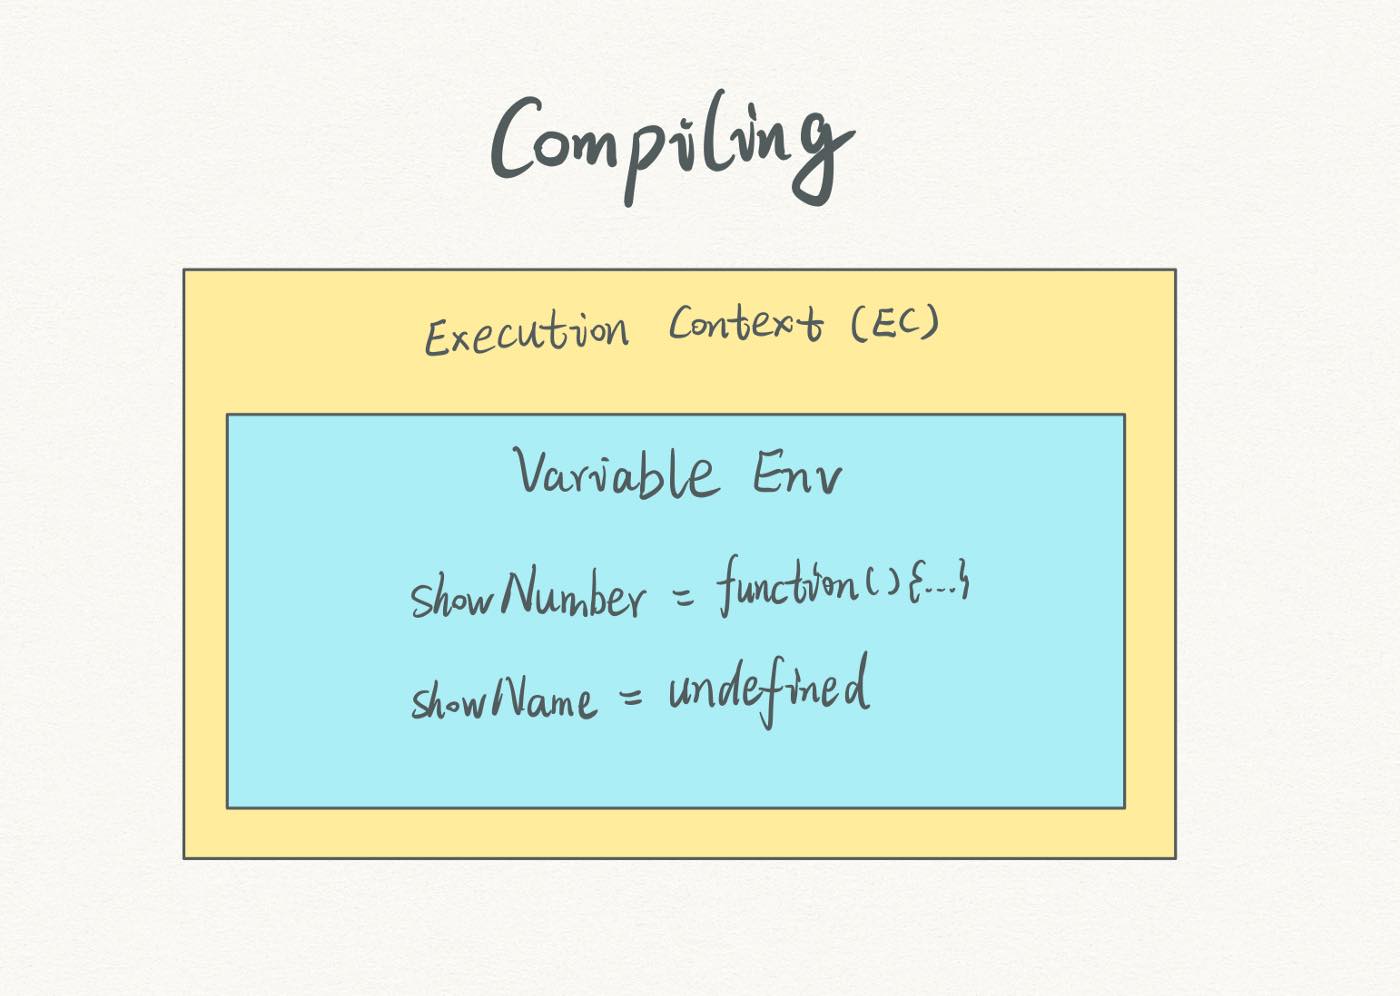 Compiling
Execution Context (EC)
Variable Env
showNumber = function(){...}
showName = undefined